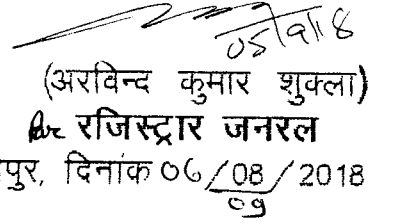 05/9/18
(अरविन्द कुमार शुक्ला)
रजिस्ट्रार जनरल
पुर, दिनांक 06/08/2018
09